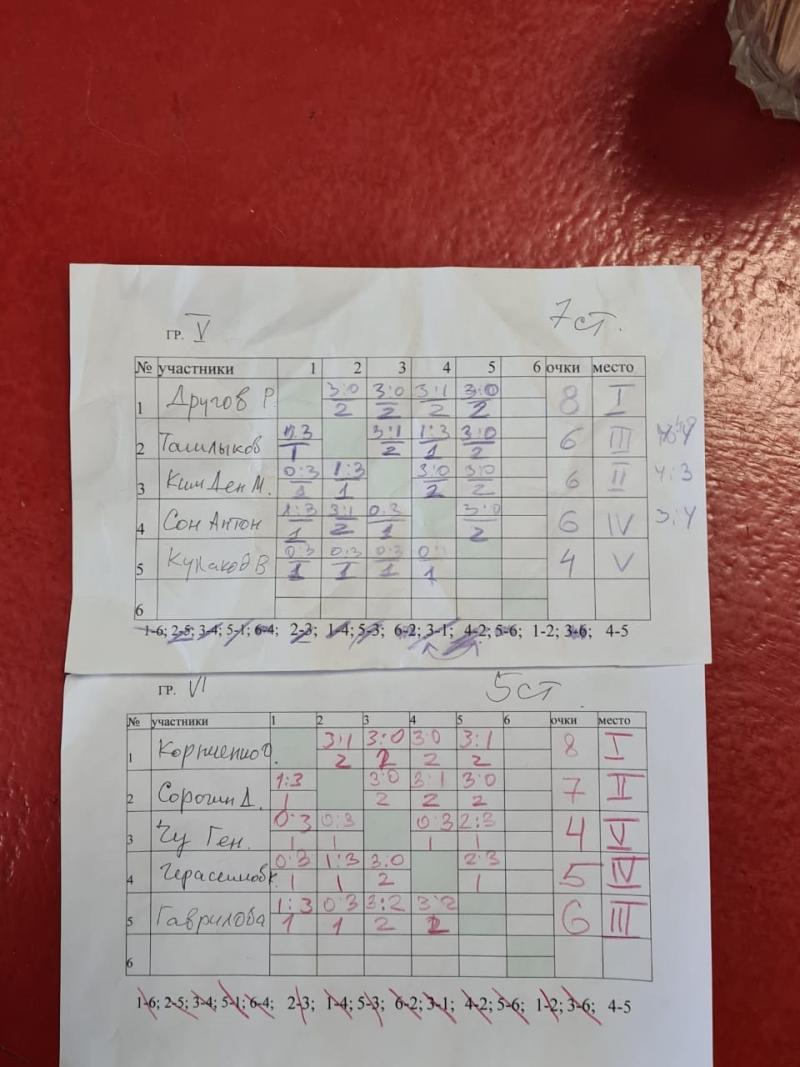 ГР. V 7 ст.
№ участники 1 2 3 4 5 6 очки место
1 Другов Р 3:0 3:0 3:1 3:0 8 I
2 2 2 2
2 Ташлыков 0:3 3:1 1:3 3:0 6 III
1 2 1 2
3 Ким Ден М. 0:3 1:3 3:0 3:0 6 II 4:3
1 1 2 2
4 Сон Антон 1:3 3:1 0:3 3:0 6 IV 3:4
1 2 1 2
5 0:3 0:3 0:3 4 V
1 1 1 1
6
1-6; 2-5; 3-4; 5-1; 6-4; 2-3; 1-4; 5-3; 6-2; 3-1; 4-2; 5-6; 1-2; 3-6; 4-5
ГР. VI 5 ст
№ участники 1 2 3 4 5 6 очки место
1 Корниенко О. 3:1 3:0 3:0 3:1 8 I
2 2 2 2
2 Сорочин Д. 1:3 3:0 3:1 3:0 7 II
1 2 2 2
3 Чу Ген. 0:3 0:3 0:3 2:3 4 V
1 1 1 1
4 Герасимов К 0:3 1:3 3:0 2:3 5 IV
1 1 2 1
5 Гаврилова 1:3 0:3 3:2 3:2 6 III
1 1 2 2
6
1-6; 2-5; 3-4; 5-1; 6-4; 2-3; 1-4; 5-3; 6-2; 3-1; 4-2; 5-6; 1-2; 3-6; 4-5